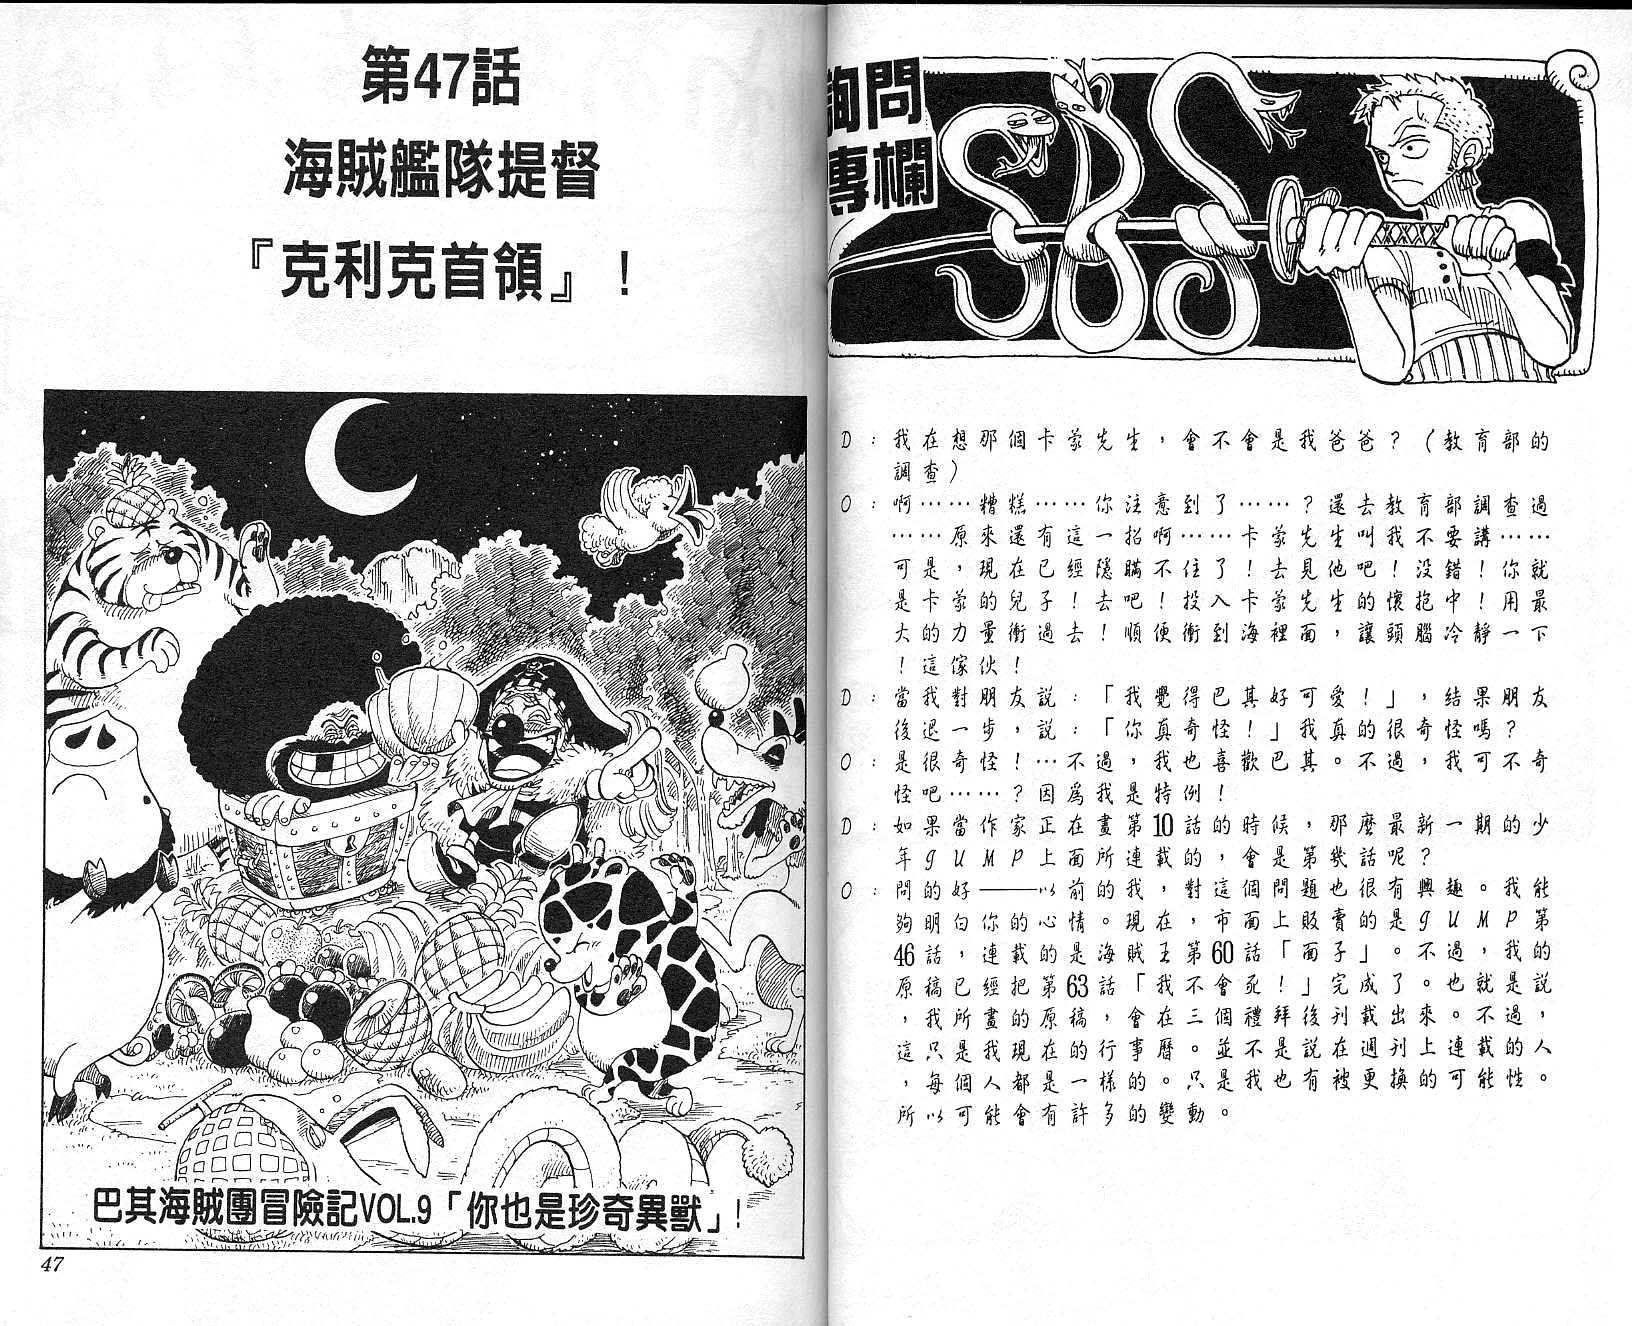 詢問
專欄
SBS
D：我在想那個卡蒙先生，會不會是我爸爸？（教育部的
調查）
O：啊……糟糕……你注意到了……？還去教育部調查過
……原來還有這一招啊……卡蒙先生叫我不要講……
可是，現在已經隱瞞不住了！去見他吧！沒錯！你就
是卡蒙的兒子！去吧！投入卡蒙先生的懷抱中！用最
大的力量衝過去！順便衝到海裡面，讓頭腦冷靜一下
！這傢伙！
D：當我對朋友說：「我覺得巴其好可愛！」，結果朋友
後退一步，說：「你真奇怪！」我真的很奇怪嗎？
O：是很奇怪！…不過，我也喜歡巴其。不過，我可不奇
怪吧……？因為我是特例！
D：如果當作家正在畫第10話的時候，那麼最新一期的少
年JUMP上面所連載的，會是第幾話呢？
O：問的好——以前的我，對這個問題也很有興趣。我能
夠明白你的心情。現在，市面上販賣的是JUMP第
46話，連載的是海賊王第60話「面子」。不過，我的
原稿已經把第63話「我不會死！」完成了。也就是說
，我所畫的原稿，會在三個禮拜後刊載出來。不過，
這只是我現在的行事曆。並不是說在週刊上連載的人
，每個人都是一樣的。只是我也有被更換的可能性。
所以可能會有許多的變動。
第47話
海賊艦隊提督
『克利克首領』！
巴其海賊團冒險記VOL.9「你也是珍奇異獸」!
47